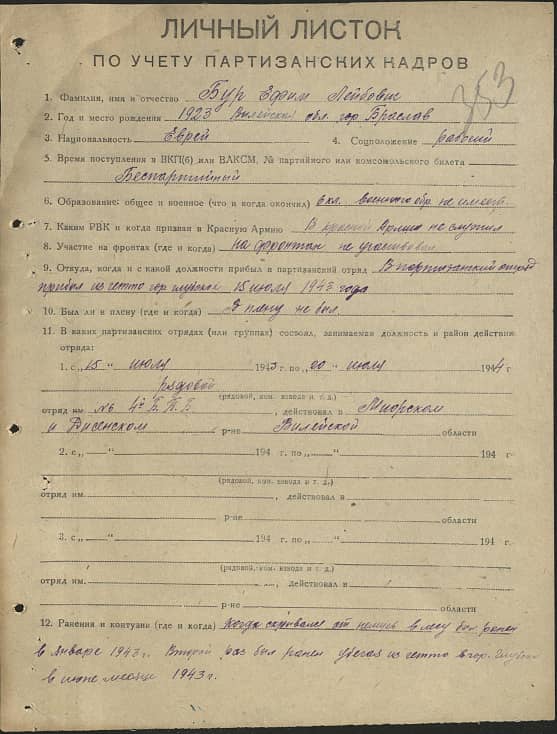 ЛИЧНЫЙ ЛИСТОК
ПО УЧЕТУ ПАРТИЗАНСКИХ КАДРОВ
353
1. Фамилия, имя и отчество Бур Ефим Лейбович
2. Год и место рождения 1923 Вилейская обл. гор. Браслав
3. Национальность Еврей 4. Соцположение рабочий
5. Время поступления в ВКП(б) или ВЛКСМ, № партийного или комсомольского билета
Беспартийный
6. Образование: общее и военное (что и когда окончил) 6 кл. военного обр. не имеет
7. Каким РВК и когда призван в Красную Армию В красной Армии не служил
8. Участие на фронтах (где и когда) на фронтах не участвовал
9. Откуда, когда и с какой должности прибыл в партизанский отряд В партизанский отряд
прибыл из гетто гор. Глубокое 15 июля 1943 года
10. Был ли в плену (где и когда) В плену не был
11. В каких партизанских отрядах (или группах) состоял, занимаемая должность и район действия
отряда:
1. с „15“ июля 1943 г. по „20“ июля 1944 г.
рядовой
(рядовой, ком. взвода и т. д.)
отряд им. № 4 Б. П. Б. , действовал в Миорском
и Дисенском р-не Вилейской области
2. с „ “ 194 г. по „ “ 194 г.
(рядовой, ком. взвода и т. д.)
отряд им. , действовал в
р-не области
3. с „ “ 194 г. по „ “ 194 г.
(рядовой, ком. взвода и т. д.)
отряд им. , действовал в
р-не области
12. Ранения и контузии (где и когда) Когда скрывался от немцев в лесу был ранен
в январе 1943 г. Второй раз был ранен убегая из гетто в гор. Глубокое
в июне месяце 1943 г.